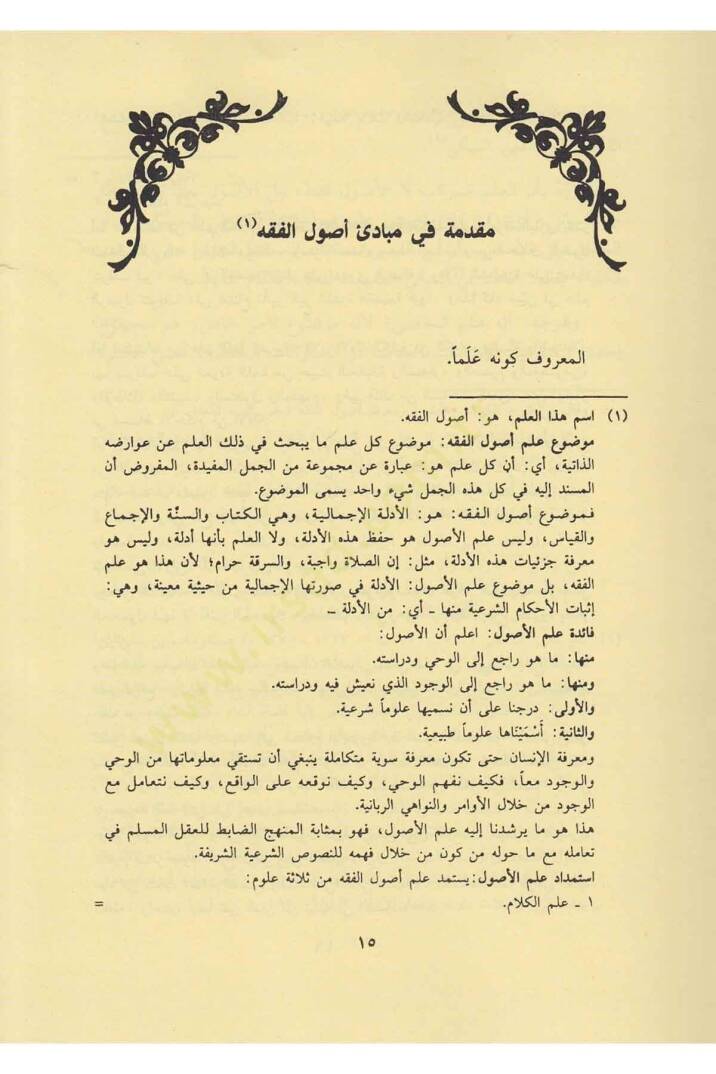 مقدمة في مبادئ أصول الفقه(١)
المعروف كونه عَلَماً.
(١) اسم هذا العلم، هو: أصول الفقه.
موضوع علم أصول الفقه: موضوع كل علم ما يبحث في ذلك العلم عن عوارضه
الذاتية، أي: أن كل علم هو: عبارة عن مجموعة من الجمل المفيدة، المفروض أن
المسند إليه في كل هذه الجمل شيء واحد يسمى الموضوع.
فموضوع أصول الفقه: هو: الأدلة الإجمالية، وهي الكتاب والسنّة والإجماع
والقياس، وليس علم الأصول هو حفظ هذه الأدلة، ولا العلم بأنها أدلة، وليس هو
معرفة جزئيات هذه الأدلة، مثل: إن الصلاة واجبة، والسرقة حرام؛ لأن هذا هو علم
الفقه، بل موضوع علم الأصول: الأدلة في صورتها الإجمالية من حيثية معينة، وهي:
إثبات الأحكام الشرعية منها ـ أي: من الأدلة ـ
فائدة علم الأصول: اعلم أن الأصول:
منها: ما هو راجع إلى الوحي ودراسته.
ومنها: ما هو راجع إلى الوجود الذي نعيش فيه ودراسته.
والأولى: درجنا على أن نسميها علوماً شرعية.
والثانية: أَسْمَيْنَاها علوماً طبيعية.
ومعرفة الإنسان حتى تكون معرفة سوية متكاملة ينبغي أن تستقي معلوماتها من الوحي
والوجود معاً، فكيف نفهم الوحي، وكيف نوقعه على الواقع، وكيف نتعامل مع
الوجود من خلال الأوامر والنواهي الربانية.
هذا هو ما يرشدنا إليه علم الأصول، فهو بمثابة المنهج الضابط للعقل المسلم في
تعامله مع ما حوله من كون من خلال فهمه للنصوص الشرعية الشريفة.
استمداد علم الأصول: يستمد علم أصول الفقه من ثلاثة علوم:
١ ـ علم الكلام. =
١٥